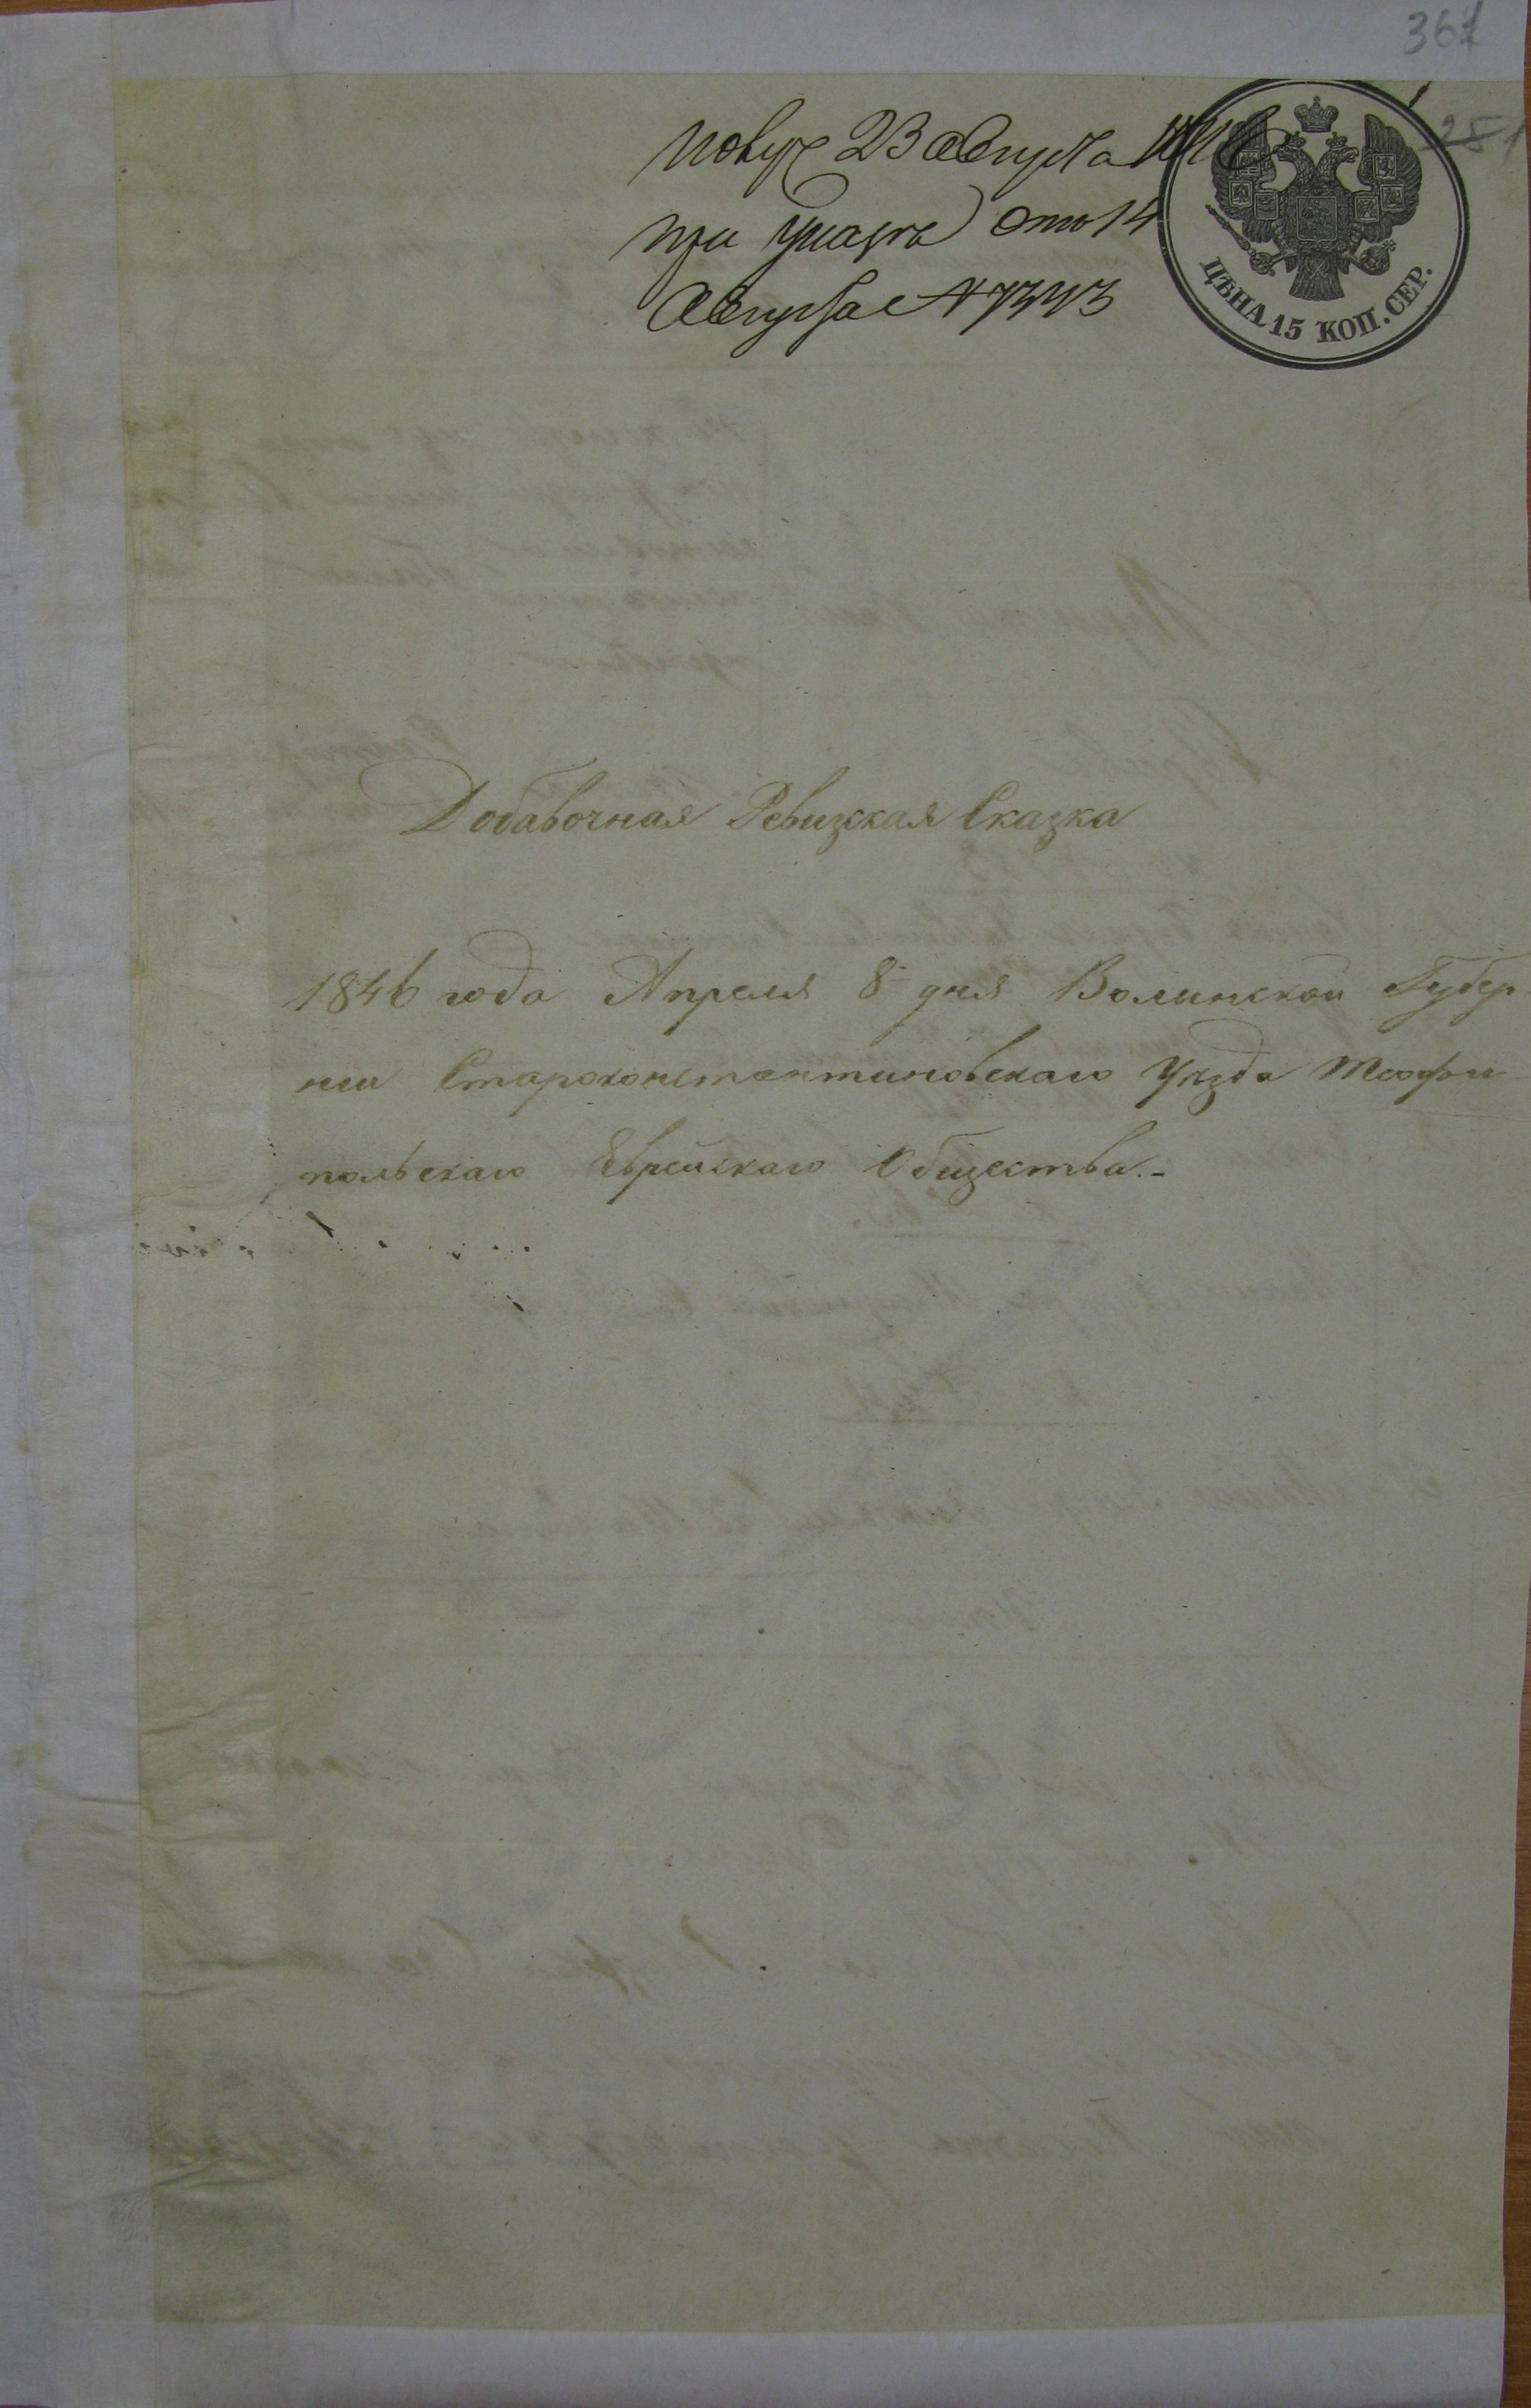 367
251
23 Августа 1846
при указе от 14
Августа № 7343
ЦѢНА 15 КОП. СЕР.
Добавочная Ревизская Сказка
1846 года Апреля 8 дня Волинской Губер-
нии Староконстантиновскаго Уѣзда Теофи-
польскаго Еврейскаго Общества.-